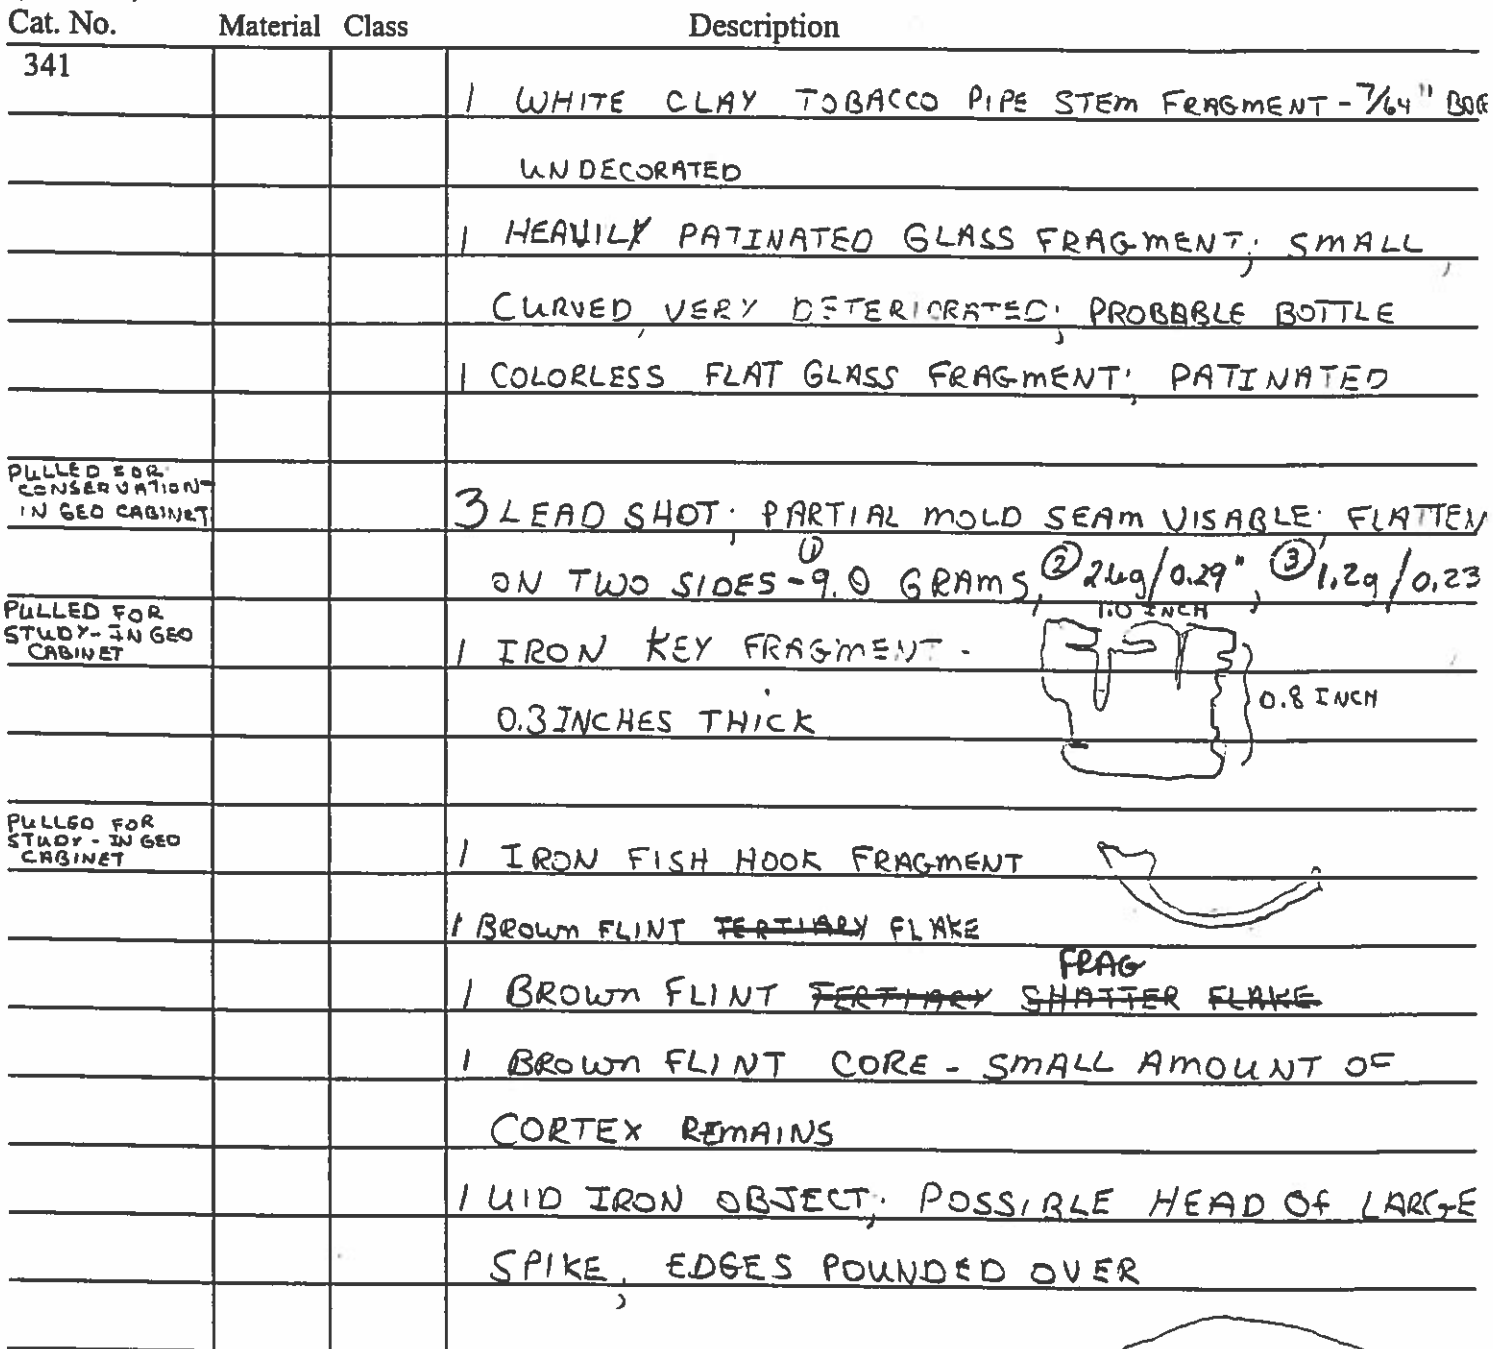 Cat. No. Material Class Description
341
1 WHITE CLAY TOBACCO PIPE STEM FRAGMENT - 7/64" BORE
UNDECORATED
1 HEAVILY PATINATED GLASS FRAGMENT; SMALL,
CURVED, VERY DETERIORATED; PROBABLE BOTTLE
1 COLORLESS FLAT GLASS FRAGMENT; PATINATED
PULLED FOR
CONSERVATION
IN GEO CABINET
3 LEAD SHOT; PARTIAL MOLD SEAM VISABLE; FLATTEN
ON TWO SIDES - ① 9.0 GRAMS, ② 2.4g/0.29", ③ 1.2g/0.23
PULLED FOR
STUDY - IN GEO
CABINET
1 IRON KEY FRAGMENT -
1.0 INCH
0.8 INCH
0.3 INCHES THICK
PULLED FOR
STUDY - IN GEO
CABINET
1 IRON FISH HOOK FRAGMENT
1 BROWN FLINT TERTIARY FLAKE
FRAG
1 BROWN FLINT TERTIARY SHATTER FLAKE
1 BROWN FLINT CORE - SMALL AMOUNT OF
CORTEX REMAINS
1 UID IRON OBJECT; POSSIBLE HEAD OF LARGE
SPIKE, EDGES POUNDED OVER